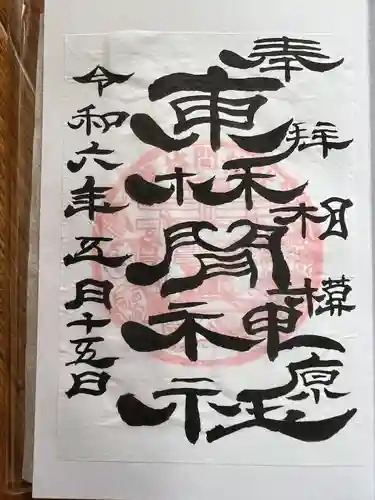 奉拝 相模原
東林間神社
令和六年五月十五日